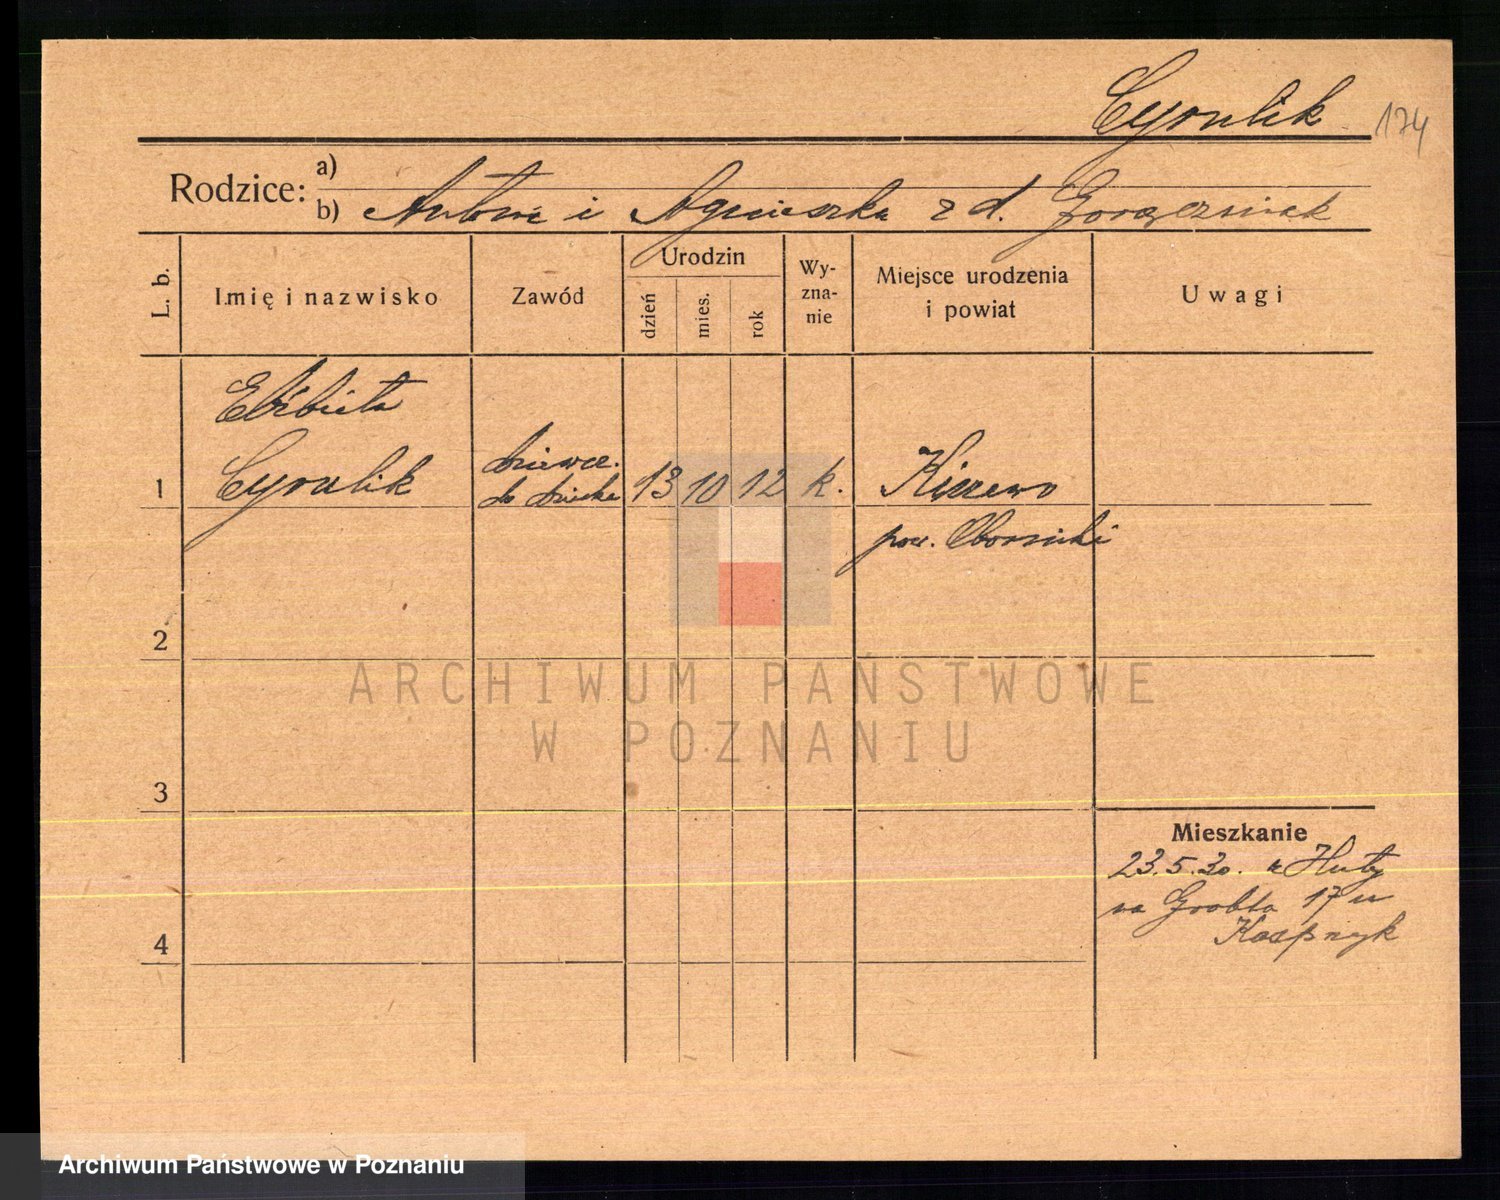 Cyrulik 174
Rodzice: a)
b) Antoni i Agnieszka z d. Gorączniak
L. b.
Imię i nazwisko
Zawód
Urodzin
dzień
mies.
rok
Wy-
zna-
nie
Miejsce urodzenia
i powiat
Uwagi
Elżbieta
1 Cyrulik dziewcz. do dziecka 13 10 12 k. Kiszewo
pow. Oborniki
2
ARCHIWUM PAŃSTWOWE
W POZNANIU
3
Mieszkanie
23.5.30. z Huty
na Grobla 17 u
4
Archiwum Państwowe w Poznaniu